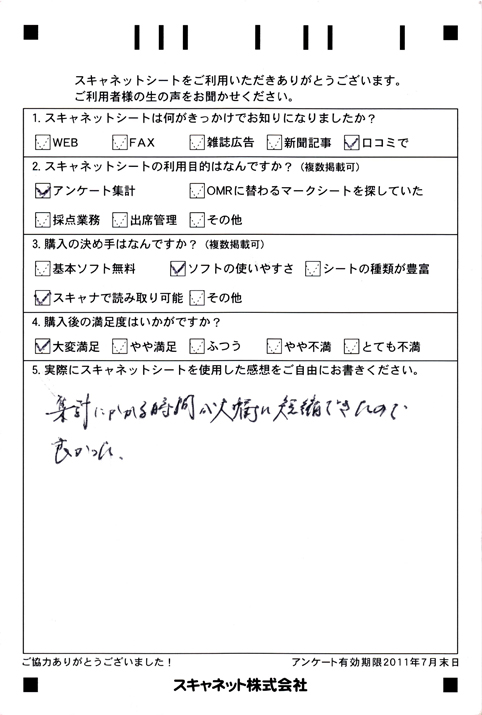 スキャネットシートをご利用いただきありがとうございます。
ご利用者様の生の声をお聞かせください。
1. スキャネットシートは何がきっかけでお知りになりましたか？
WEB FAX 雑誌広告 新聞記事 口コミで
2. スキャネットシートの利用目的はなんですか？（複数掲載可）
アンケート集計 OMRに替わるマークシートを探していた
採点業務 出席管理 その他
3. 購入の決め手はなんですか？（複数掲載可）
基本ソフト無料 ソフトの使いやすさ シートの種類が豊富
スキャナで読み取り可能 その他
4. 購入後の満足度はいかがですか？
大変満足 やや満足 ふつう やや不満 とても不満
5. 実際にスキャネットシートを使用した感想をご自由にお書きください。
集計にかかる時間が大幅に短縮できたので
良かった、
ご協力ありがとうございました！ アンケート有効期限2011年7月末日
スキャネット株式会社